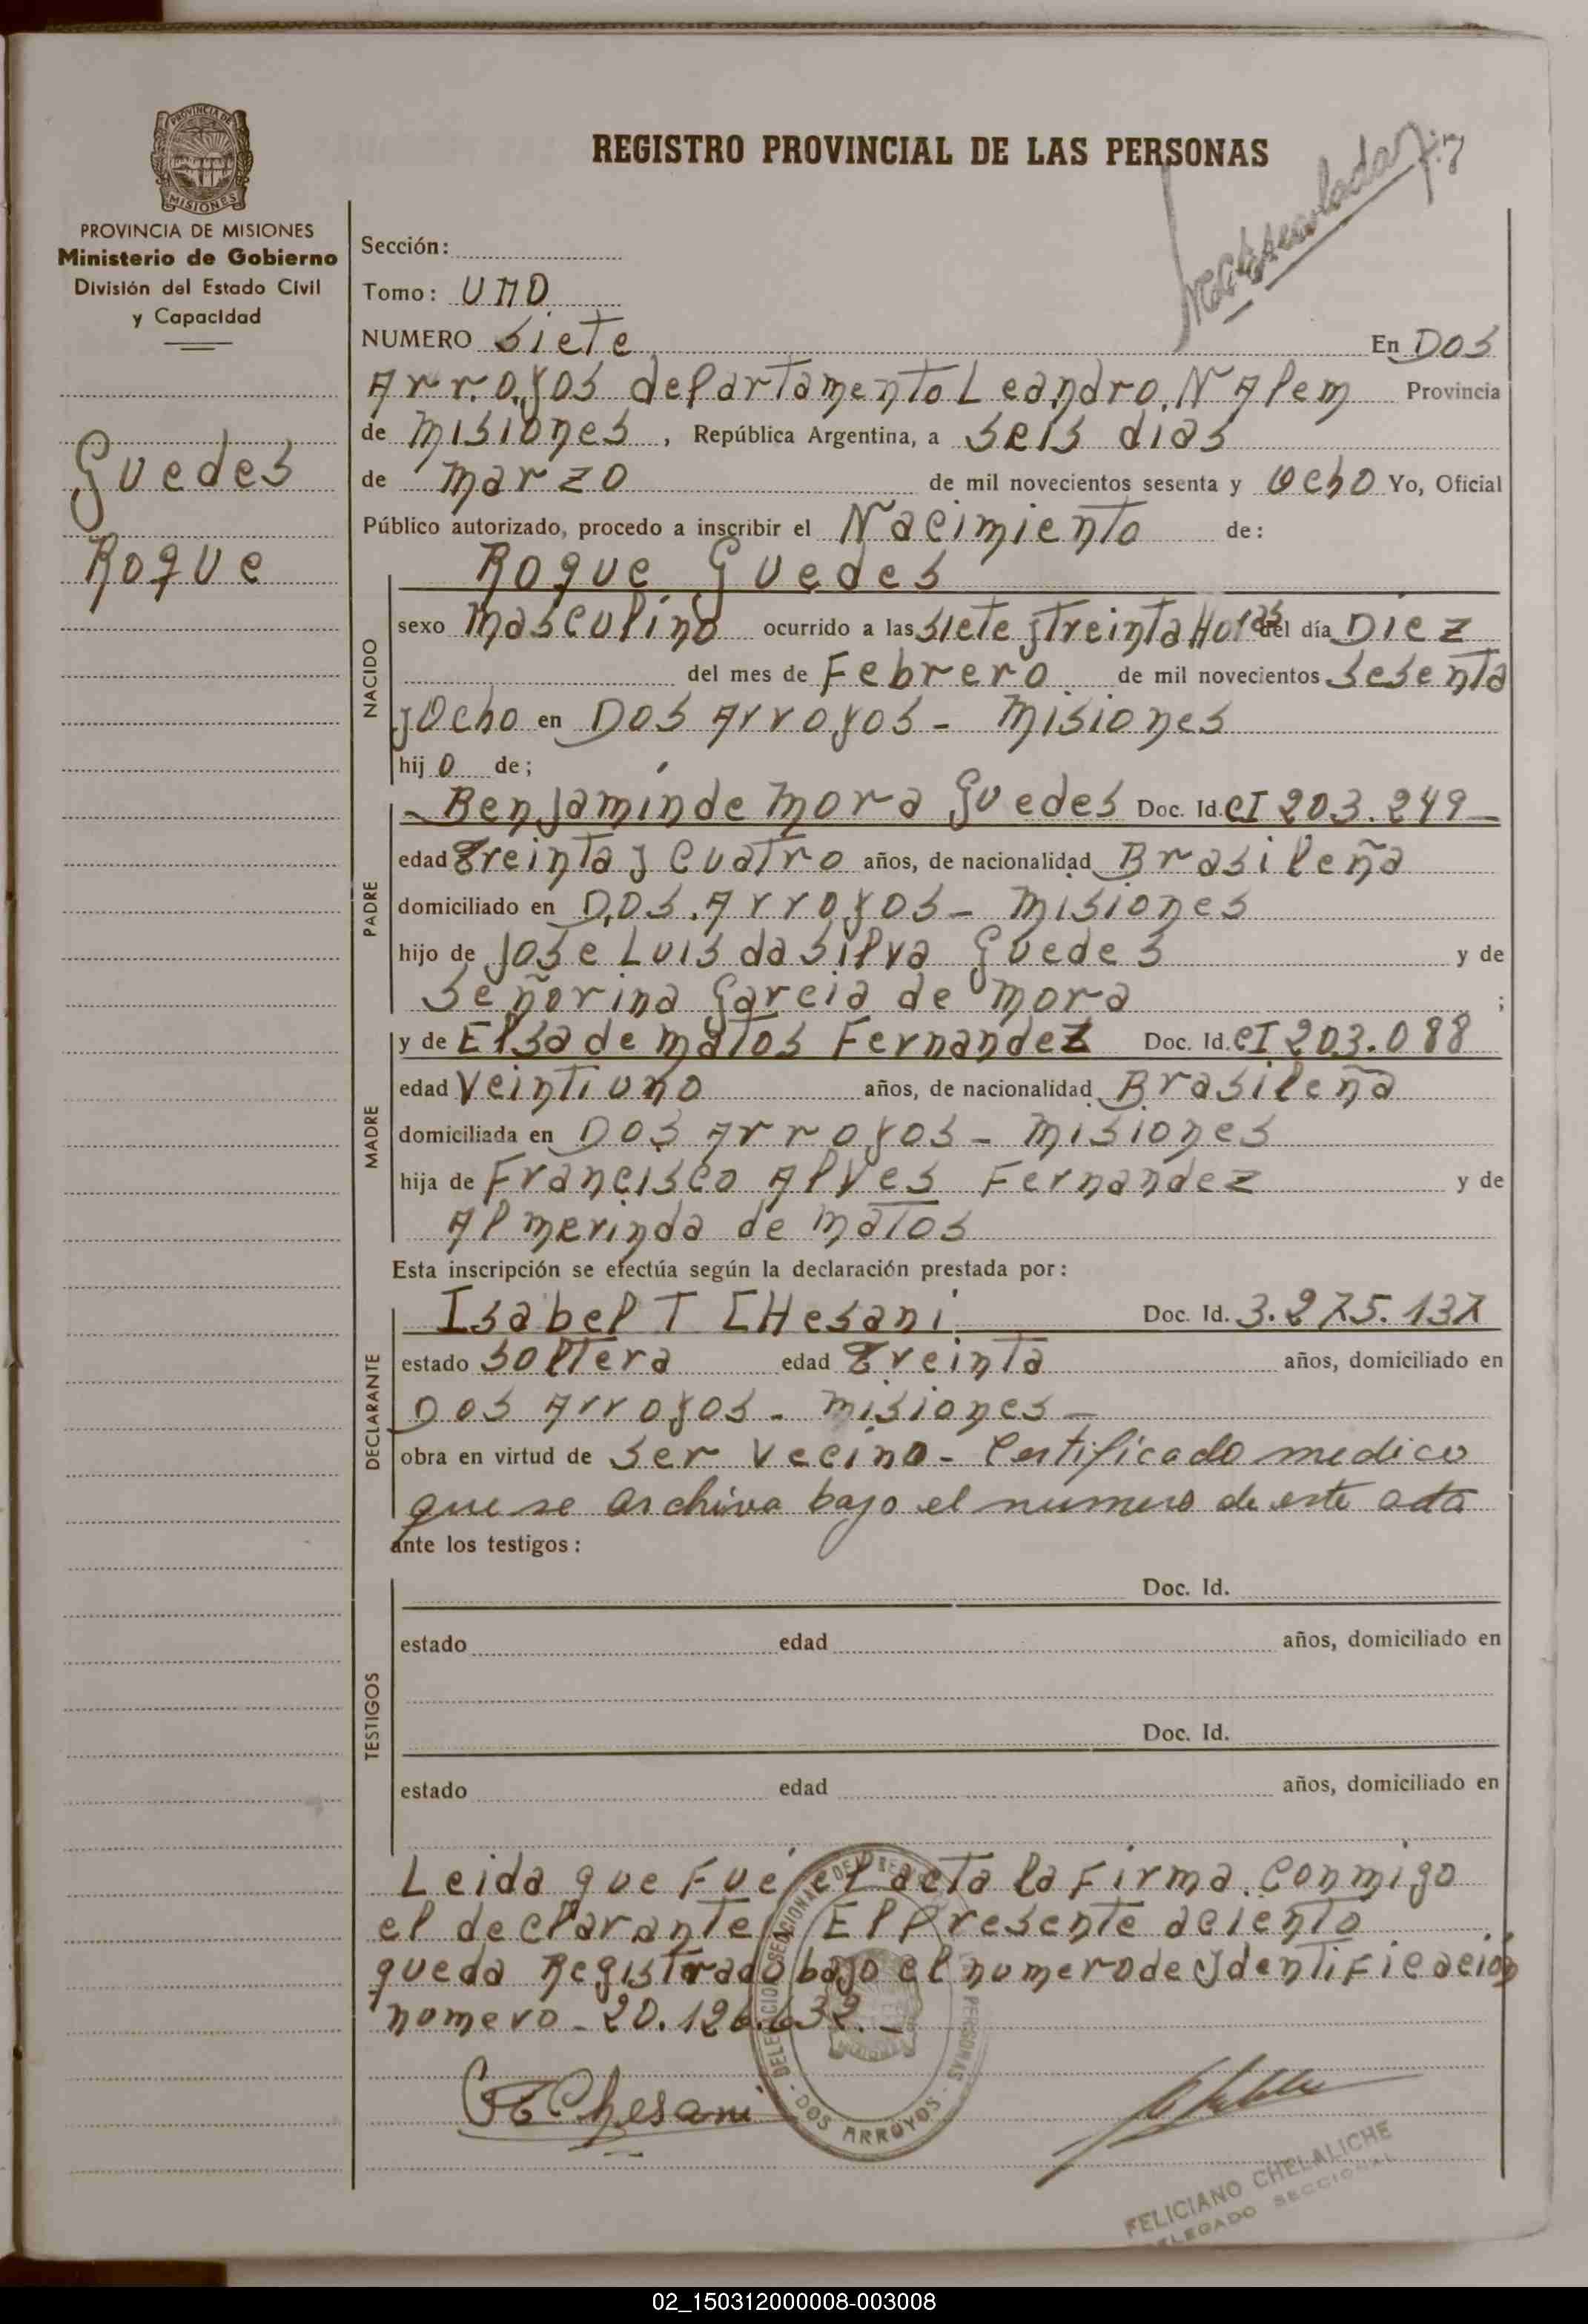 REGISTRO PROVINCIAL DE LAS PERSONAS
PROVINCIA DE
MISIONES
PROVINCIA DE MISIONES
Ministerio de Gobierno
División del Estado Civil
y Capacidad
Guedes
Roque
Sección:
Tomo: UNO
NUMERO Siete En Dos
Arroyos departamento Leandro N Alem Provincia
de Misiones, República Argentina, a Seis dias
de Marzo de mil novecientos sesenta y Ocho Yo, Oficial
Público autorizado, procedo a inscribir el Nacimiento de:
Roque Guedes
NACIDO
sexo Masculino ocurrido a las Siete y Treinta Horas del día Diez
del mes de Febrero de mil novecientos Sesenta
y Ocho en Dos Arroyos - Misiones
hij o de;
PADRE
Benjamin de Mora Guedes Doc. Id. CI 203.249
edad Treinta y Cuatro años, de nacionalidad Brasileña
domiciliado en Dos Arroyos - Misiones
hijo de Jose Luis da Silva Guedes y de
Señorina Garcia de Mora ;
MADRE
y de Elsa de Matos Fernandez Doc. Id. CI 203.088
edad Veintiuno años, de nacionalidad Brasileña
domiciliada en Dos Arroyos - Misiones
hija de Francisco Alves Fernandez y de
Almerinda de Matos
Esta inscripción se efectúa según la declaración prestada por:
DECLARANTE
Isabel T CHesani Doc. Id. 3.275.137
estado Soltera edad Treinta años, domiciliado en
Dos Arroyos - Misiones -
obra en virtud de Ser Vecino - Certificado medico
que se archiva bajo el numero de este acta
ante los testigos:
TESTIGOS
Doc. Id.
estado edad años, domiciliado en
Doc. Id.
estado edad años, domiciliado en
Leida que Fué el acta la Firma Conmigo
el declarante El Presente aciento
queda Registrado bajo el numero de Identificación
numero - 20.126.632.-
DELEGACION SECCIONAL DEL REGISTRO PERSONAS - DOS ARROYOS -
Chesani
FELICIANO CHELALICHE
DELEGADO SECCIONAL
02_150312000008-003008